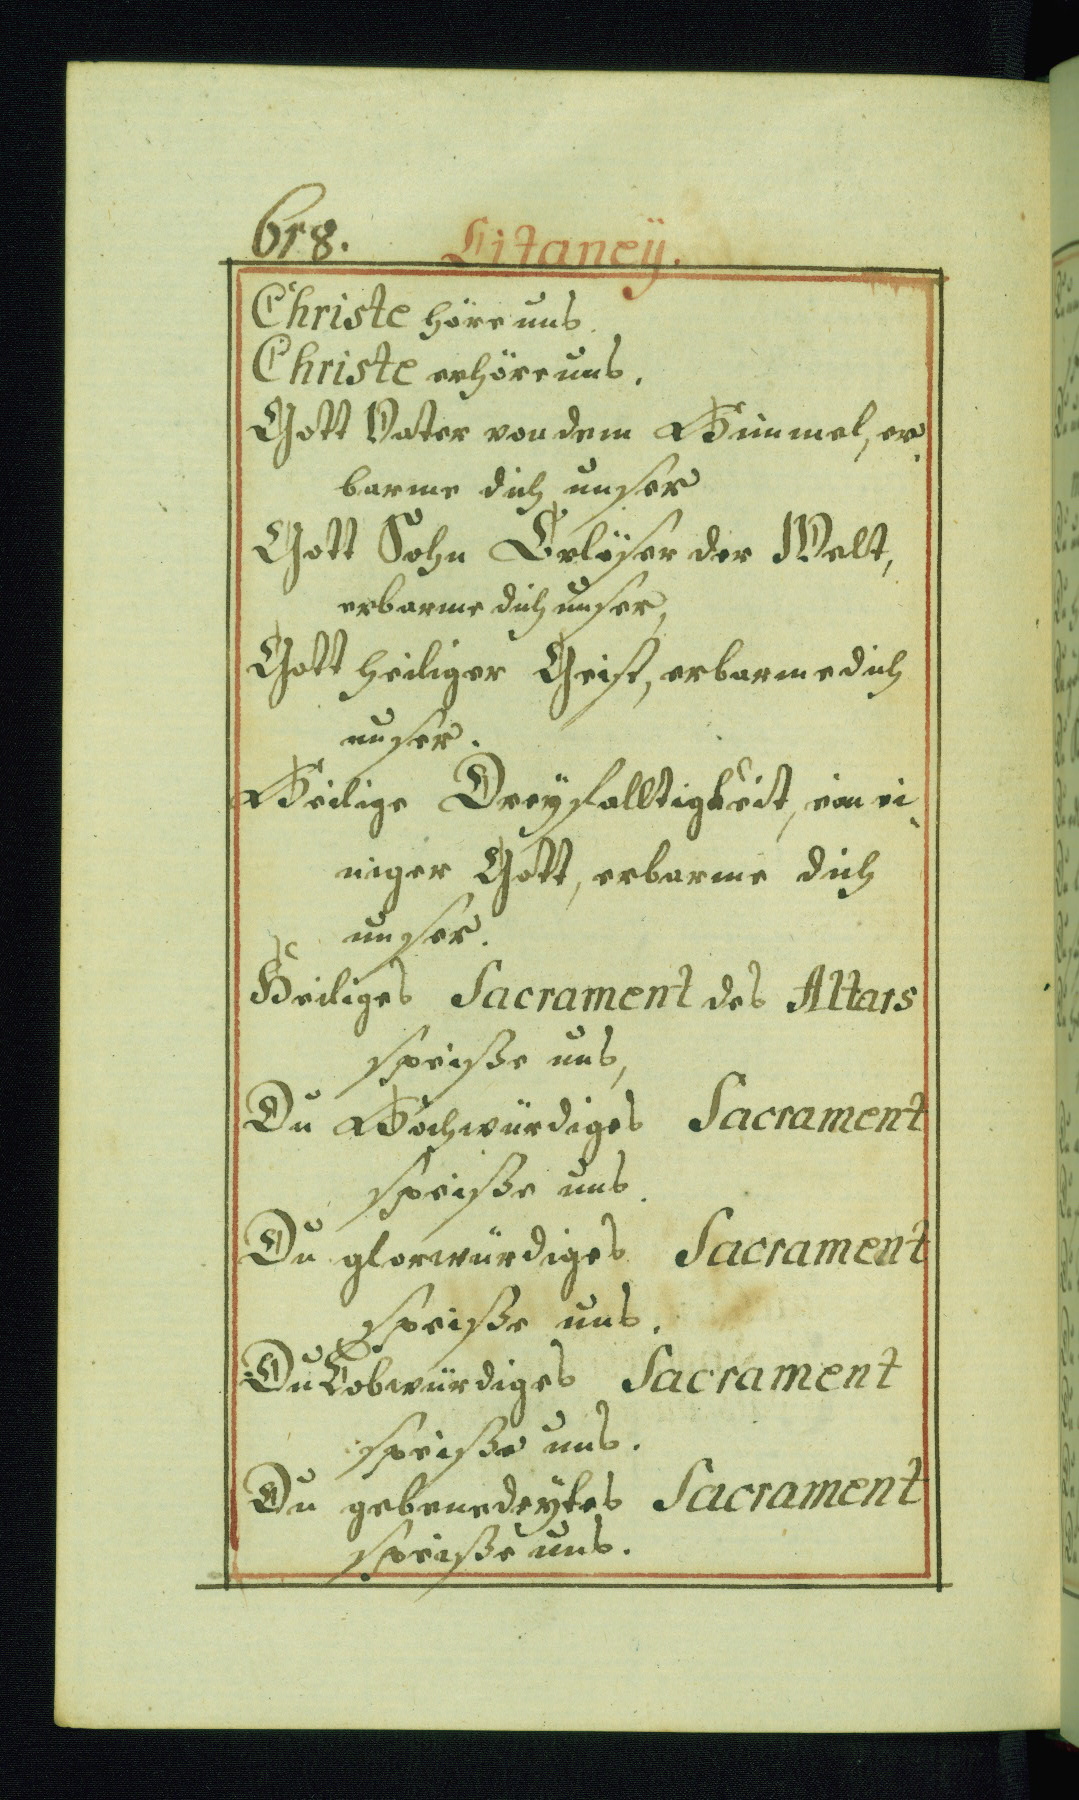 618. Litaneÿ.
Christe höre uns.
Christe erhöre uns.
Gott Vater von dem Himmel, er-
barme dich unser
Gott Sohn Erlöser der Welt,
erbarme dich unser,
Gott heiliger Geist, erbarme dich
unser.
Heilige Dreÿfalltigkeit, ein ei-
niger Gott, erbarme dich
unser.
Heiliges Sacrament des Altars
speiße uns,
Du Hochwürdiges Sacrament
speiße uns.
Du glorwürdiges Sacrament
speiße uns.
Du Lobwürdiges Sacrament
speiße uns.
Du gebenedeÿtes Sacrament
speiße uns.